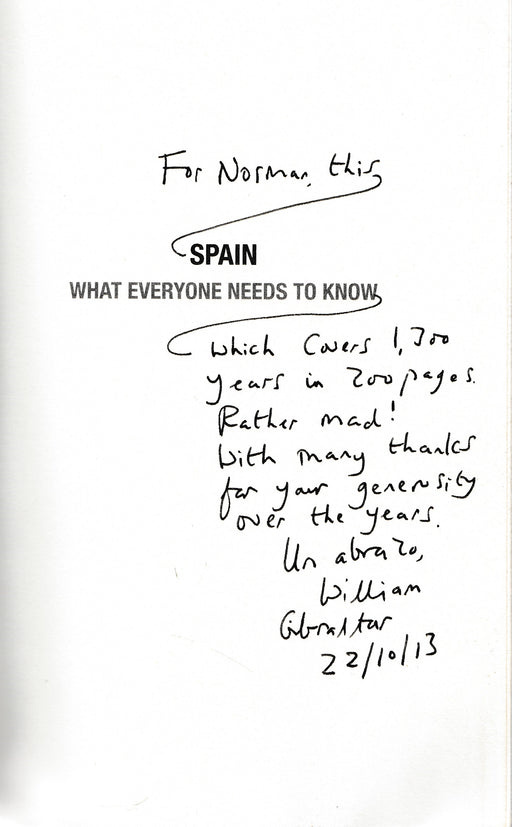 For Norman, this
SPAIN
WHAT EVERYONE NEEDS TO KNOW
which covers 1,300
years in 200 pages.
Rather mad!
With many thanks
for your generosity
over the years.
Un abrazo,
William
Gibraltar
22/10/13